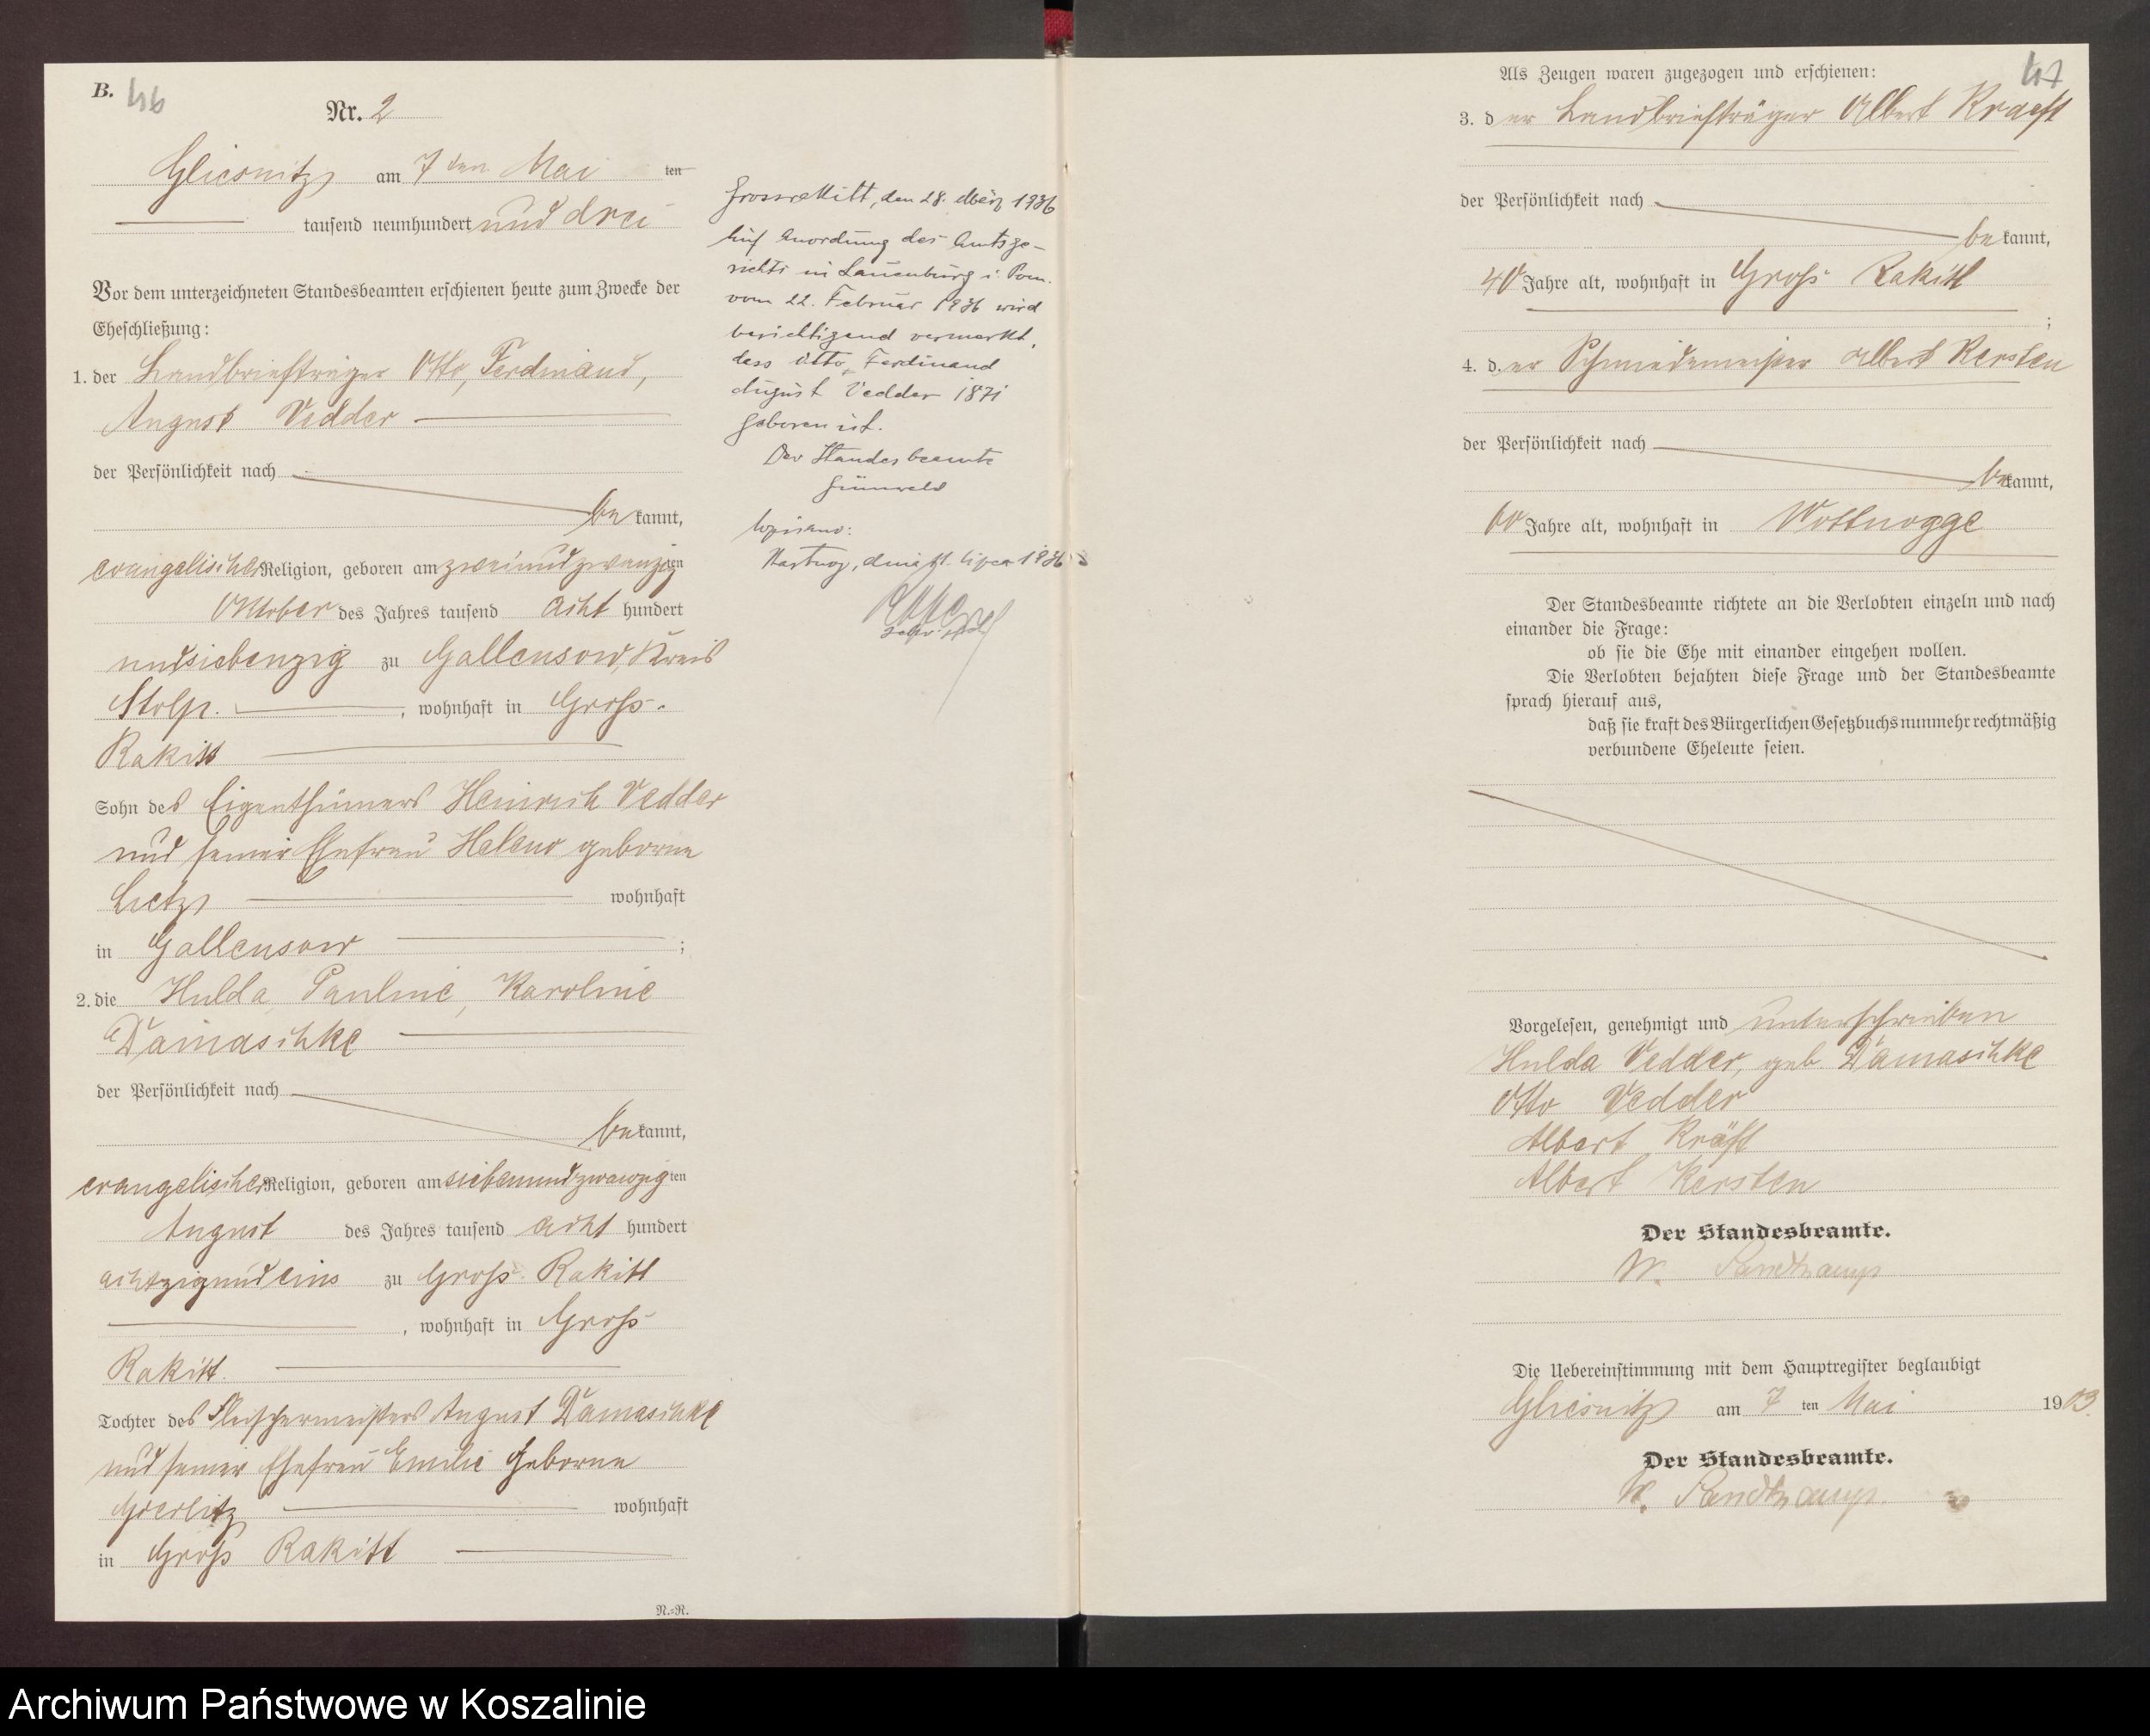 B. 46
Nr. 2
Gliesnitz am 7 ten Mai ten
tausend neunhundert und drei
Vor dem unterzeichneten Standesbeamten erschienen heute zum Zwecke der
Eheschließung:
1. der Landbriefträger Otto, Ferdinand,
August Vedder
der Persönlichkeit nach
be kannt,
evangelischer Religion, geboren am zweiundzwanzig ten
Oktober des Jahres tausend acht hundert
undsiebenzig zu Gallensow, Kreis
Stolp. , wohnhaft in Groß-
Rakitt
Sohn des Eigenthümers Heinrich Vedder
und seiner Ehefrau Helene geborne
Lietz wohnhaft
in Gallensow ;
2. die Hulda, Pauline, Karoline
Damaschke
der Persönlichkeit nach
be kannt,
evangelischer Religion, geboren am siebenundzwanzig ten
August des Jahres tausend acht hundert
achtzigundeins zu Groß Rakitt
, wohnhaft in Groß
Rakitt.
Tochter des Fleischermeisters August Damaschke
und seiner Ehefrau Emilie geborne
Goerlitz wohnhaft
in Groß Rakitt
N.=N.
Grossrakitt, den 28. März 1936
Auf Anordnung des Amtsge-
richts in Lauenburg i. Pom.
vom 22. Februar 1936 wird
berichtigend vermerkt,
dass Otto, Ferdinand
August Vedder 1871
geboren ist.
Der Standesbeamte
Grünwald
Wpisano:
lipca 1936
47
Als Zeugen waren zugezogen und erschienen:
3. d er Landbriefträger Albert Kraeft
der Persönlichkeit nach
be kannt,
40 Jahre alt, wohnhaft in Groß Rakitt
;
4. d. er Schmiedemeister Albert Kersten
der Persönlichkeit nach
be kannt,
60 Jahre alt, wohnhaft in Wottnogge
Der Standesbeamte richtete an die Verlobten einzeln und nach
einander die Frage:
ob sie die Ehe mit einander eingehen wollen.
Die Verlobten bejahten diese Frage und der Standesbeamte
sprach hierauf aus,
daß sie kraft des Bürgerlichen Gesetzbuchs nunmehr rechtmäßig
verbundene Eheleute seien.
Vorgelesen, genehmigt und unterschrieben
Hulda Vedder, geb. Damaschke
Otto Vedder
Albert Kräft
Albert Kersten
Der Standesbeamte.
W. Sandkamp
Die Uebereinstimmung mit dem Hauptregister beglaubigt
Gliesnitz am 7 ten Mai 1903.
Der Standesbeamte.
W. Sandkamp.
Archiwum Państwowe w Koszalinie